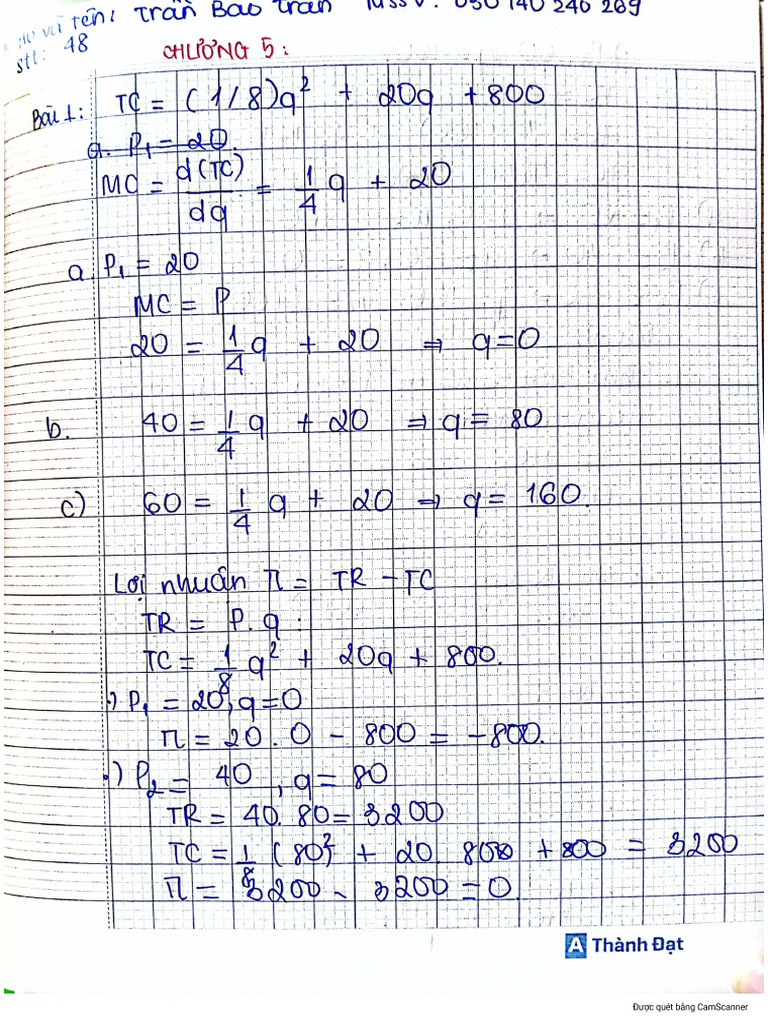 Họ và tên: Trần Bảo Trân MSSV: 030 140 240 269
stt: 48
CHƯƠNG 5:
Bài 1: TC = (1/8)q² + 20q + 800
a. P₁ = 20.
MC = d(TC)/dq = 1/4 q + 20
a. P₁ = 20
MC = P
20 = 1/4 q + 20 ⇒ q = 0
b. 40 = 1/4 q + 20 ⇒ q = 80
c) 60 = 1/4 q + 20 ⇒ q = 160.
Lợi nhuận π = TR - TC
TR = P. q.
TC = 1/8 q² + 20q + 800.
·) P₁ = 20, q = 0
π = 20 . 0 - 800 = -800.
·) P₂ = 40, q = 80
TR = 40. 80 = 3200
TC = 1/8 (80²) + 20. + 800 = 3200
π = 3200 - 3200 = 0.
A Thành Đạt
Được quét bằng CamScanner